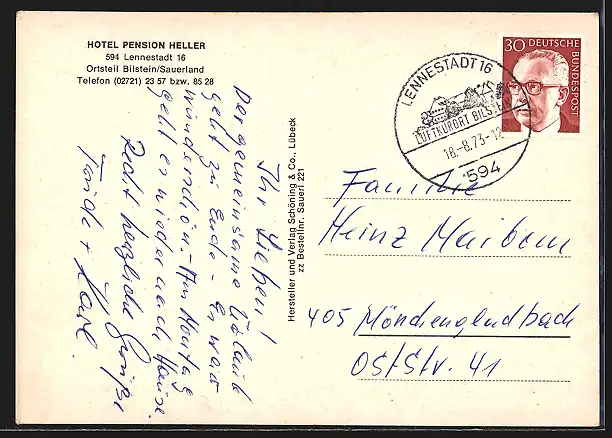 HOTEL PENSION HELLER
594 Lennestadt 16
Ortsteil Bilstein/Sauerland
Telefon (02721) 23 57 bzw. 85 28
Ihr Lieben!
Der gemeinsame Urlaub
geht zu Ende - Es war
wunderschön. - Am Montag
geht es wieder nach Hause.
Recht herzliche Grüße
Frieda + Karl.
Hersteller und Verlag Schöning & Co., Lübeck
zz Bestellnr. Sauerl 221
LENNESTADT 16
LUFTKURORT BILSTEIN
18.-8.73-12
594
30 DEUTSCHE BUNDESPOST
Familie
Heinz Maibom
405 Mönchengladbach
Oststr. 41